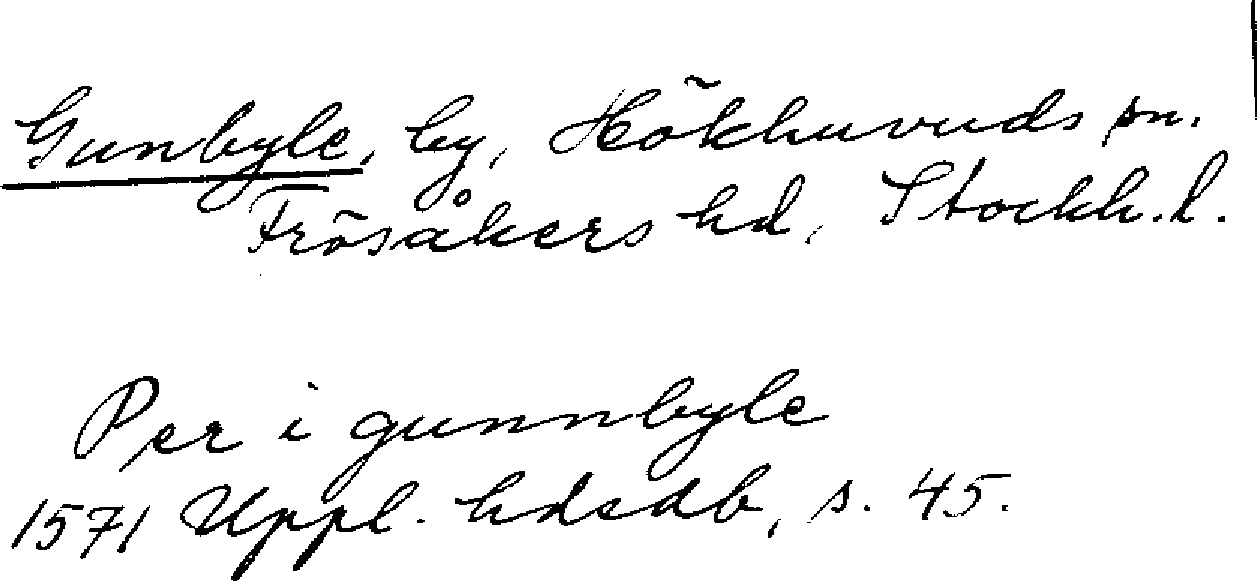 Gunbyle, by, Hökhuvuds sn.
Frösåkers hd, Stockh. l.
Per i gunnbyle
1571 Uppl. hdsdb, s. 45.